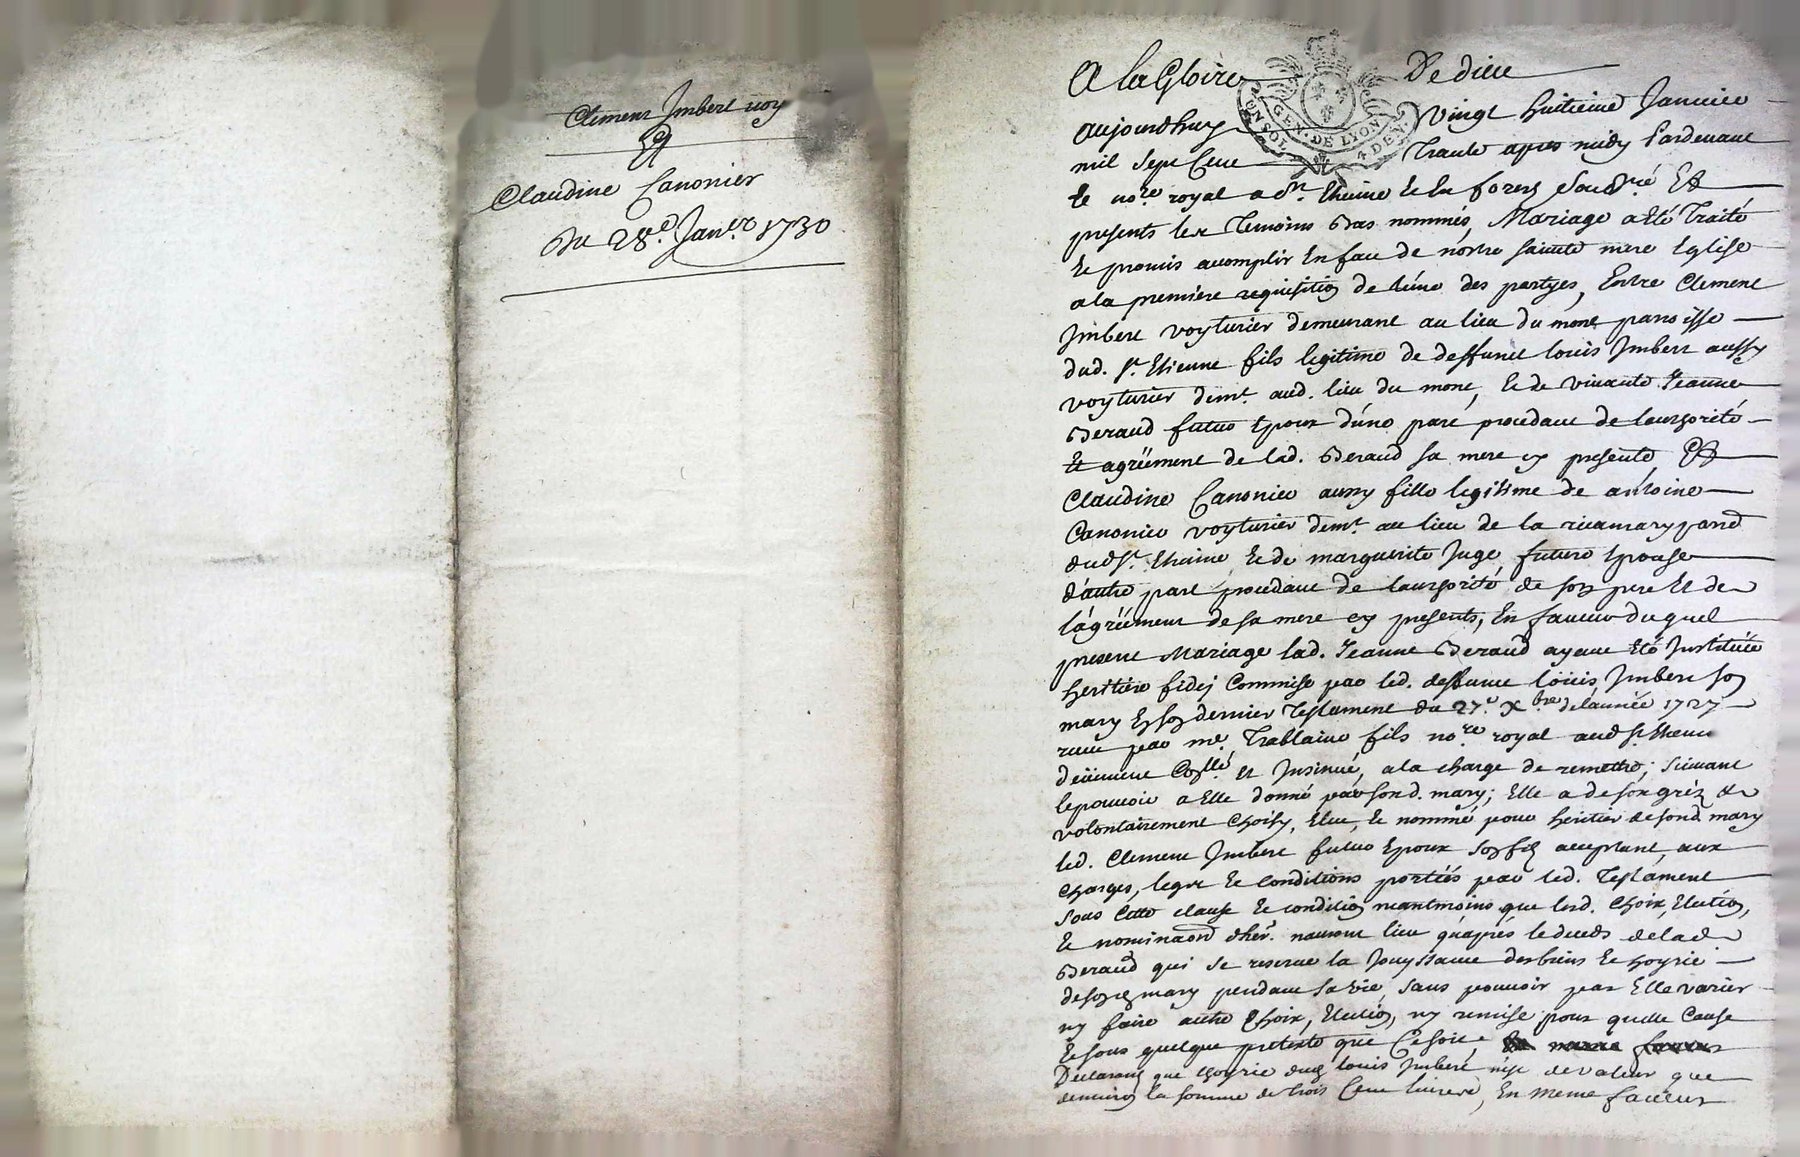 Clement Imbert voy
Et
Claudine Canonier
Du 28.e Jan.er 1730
A la Gloire De dieu
GEN. DE LYON
4 DEN.
aujourdhuy vingt huitieme Janvier
mil sept Cent Trante apres midy Pardevant
le no.re royal a St. Etienne de forez Soubz.né Et
presents les Temoins Bas nommés, Mariage a Eté Traité
Et promis acomplir En face de nostre sainte mere Eglise
a la premiere requisition de l'une des partyes, Entre Clement
Imbert voyturier demeurant au lieu du mont parroisse
dud. St. Etienne fils legitime de deffunct louis Imbert aussy
voyturier dem.t aud. lieu du mont, et de vivante Jeanne
Beraud futur Epoux d'une part procedant de l'authorité
Et agréement de lad. Beraud sa mere cy presente, Et
Claudine Canonier aussy fille legitime de antoine
Canonier voyturier dem.t au lieu de la ricamary parr.
dud St. Etienne Et de marguerite Juge, future Epouse
d'autre part procedant de l'authorité de son pere Et de
l'agréement de sa mere cy presents, En faveur duquel
present Mariage lad. Jeanne Beraud ayant Eté Instituée
heritiere fidei Commise par led. deffunct loüis Imbert son
mary En son dernier Testament du 27.e Xbre de l'année 1727
receu par me. Trablaine fils no.re royal aud St. Etienne
deüement Con.llé Et Insinué, a la charge de remettre; suivant
le pouvoir a Elle donné par sond. mary; Elle a de son gréz Et
volontairement Choisy, Elu, Et nommé pour heritier de sond. mary
led. Clement Imbert futur Epoux son fils acceptant, aux
Charges, legats Et Conditions portées par led. Testament
sous Cette clause Et condition neantmoins que lesd. Choix, Election,
Et nomina.on d'her. n'auront lieu qu'après le deceds de lad.
Beraud qui se reserve la Jouyssance des biens Et hoyrie
de sond. mary pendant sa vie, sans pouvoir par Elle varier
ny faire autre Choix, Election, ny remise pour quelle Cause
Et sous quelque pretexte que Ce soit,
Declarant que l'hoyrie dud. louis Imbert n'est de valeur que
d'environ la somme de trois Cent livres, En Meme faveur